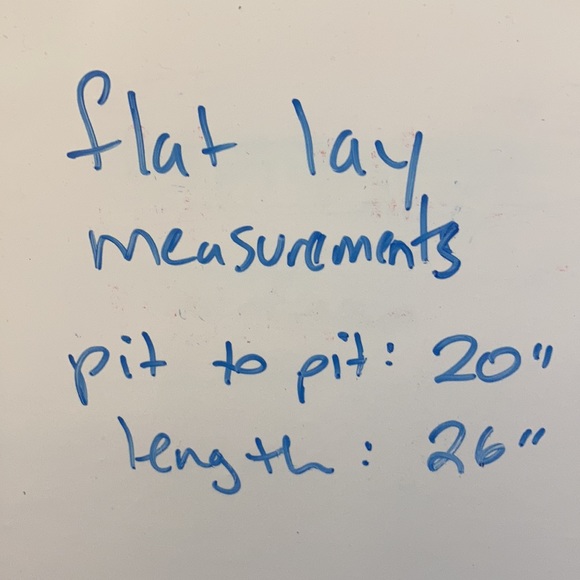 flat lay
measurements
pit to pit: 20"
length: 26"